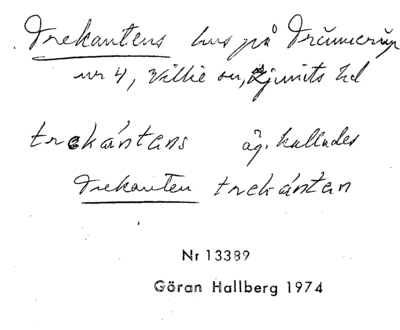 Trekantens hus på Trunnerup
nr 4, Villie sn, Ljunits hd
trekántans äg. kallades
Trekanten trekántan
Nr 13389
Göran Hallberg 1974